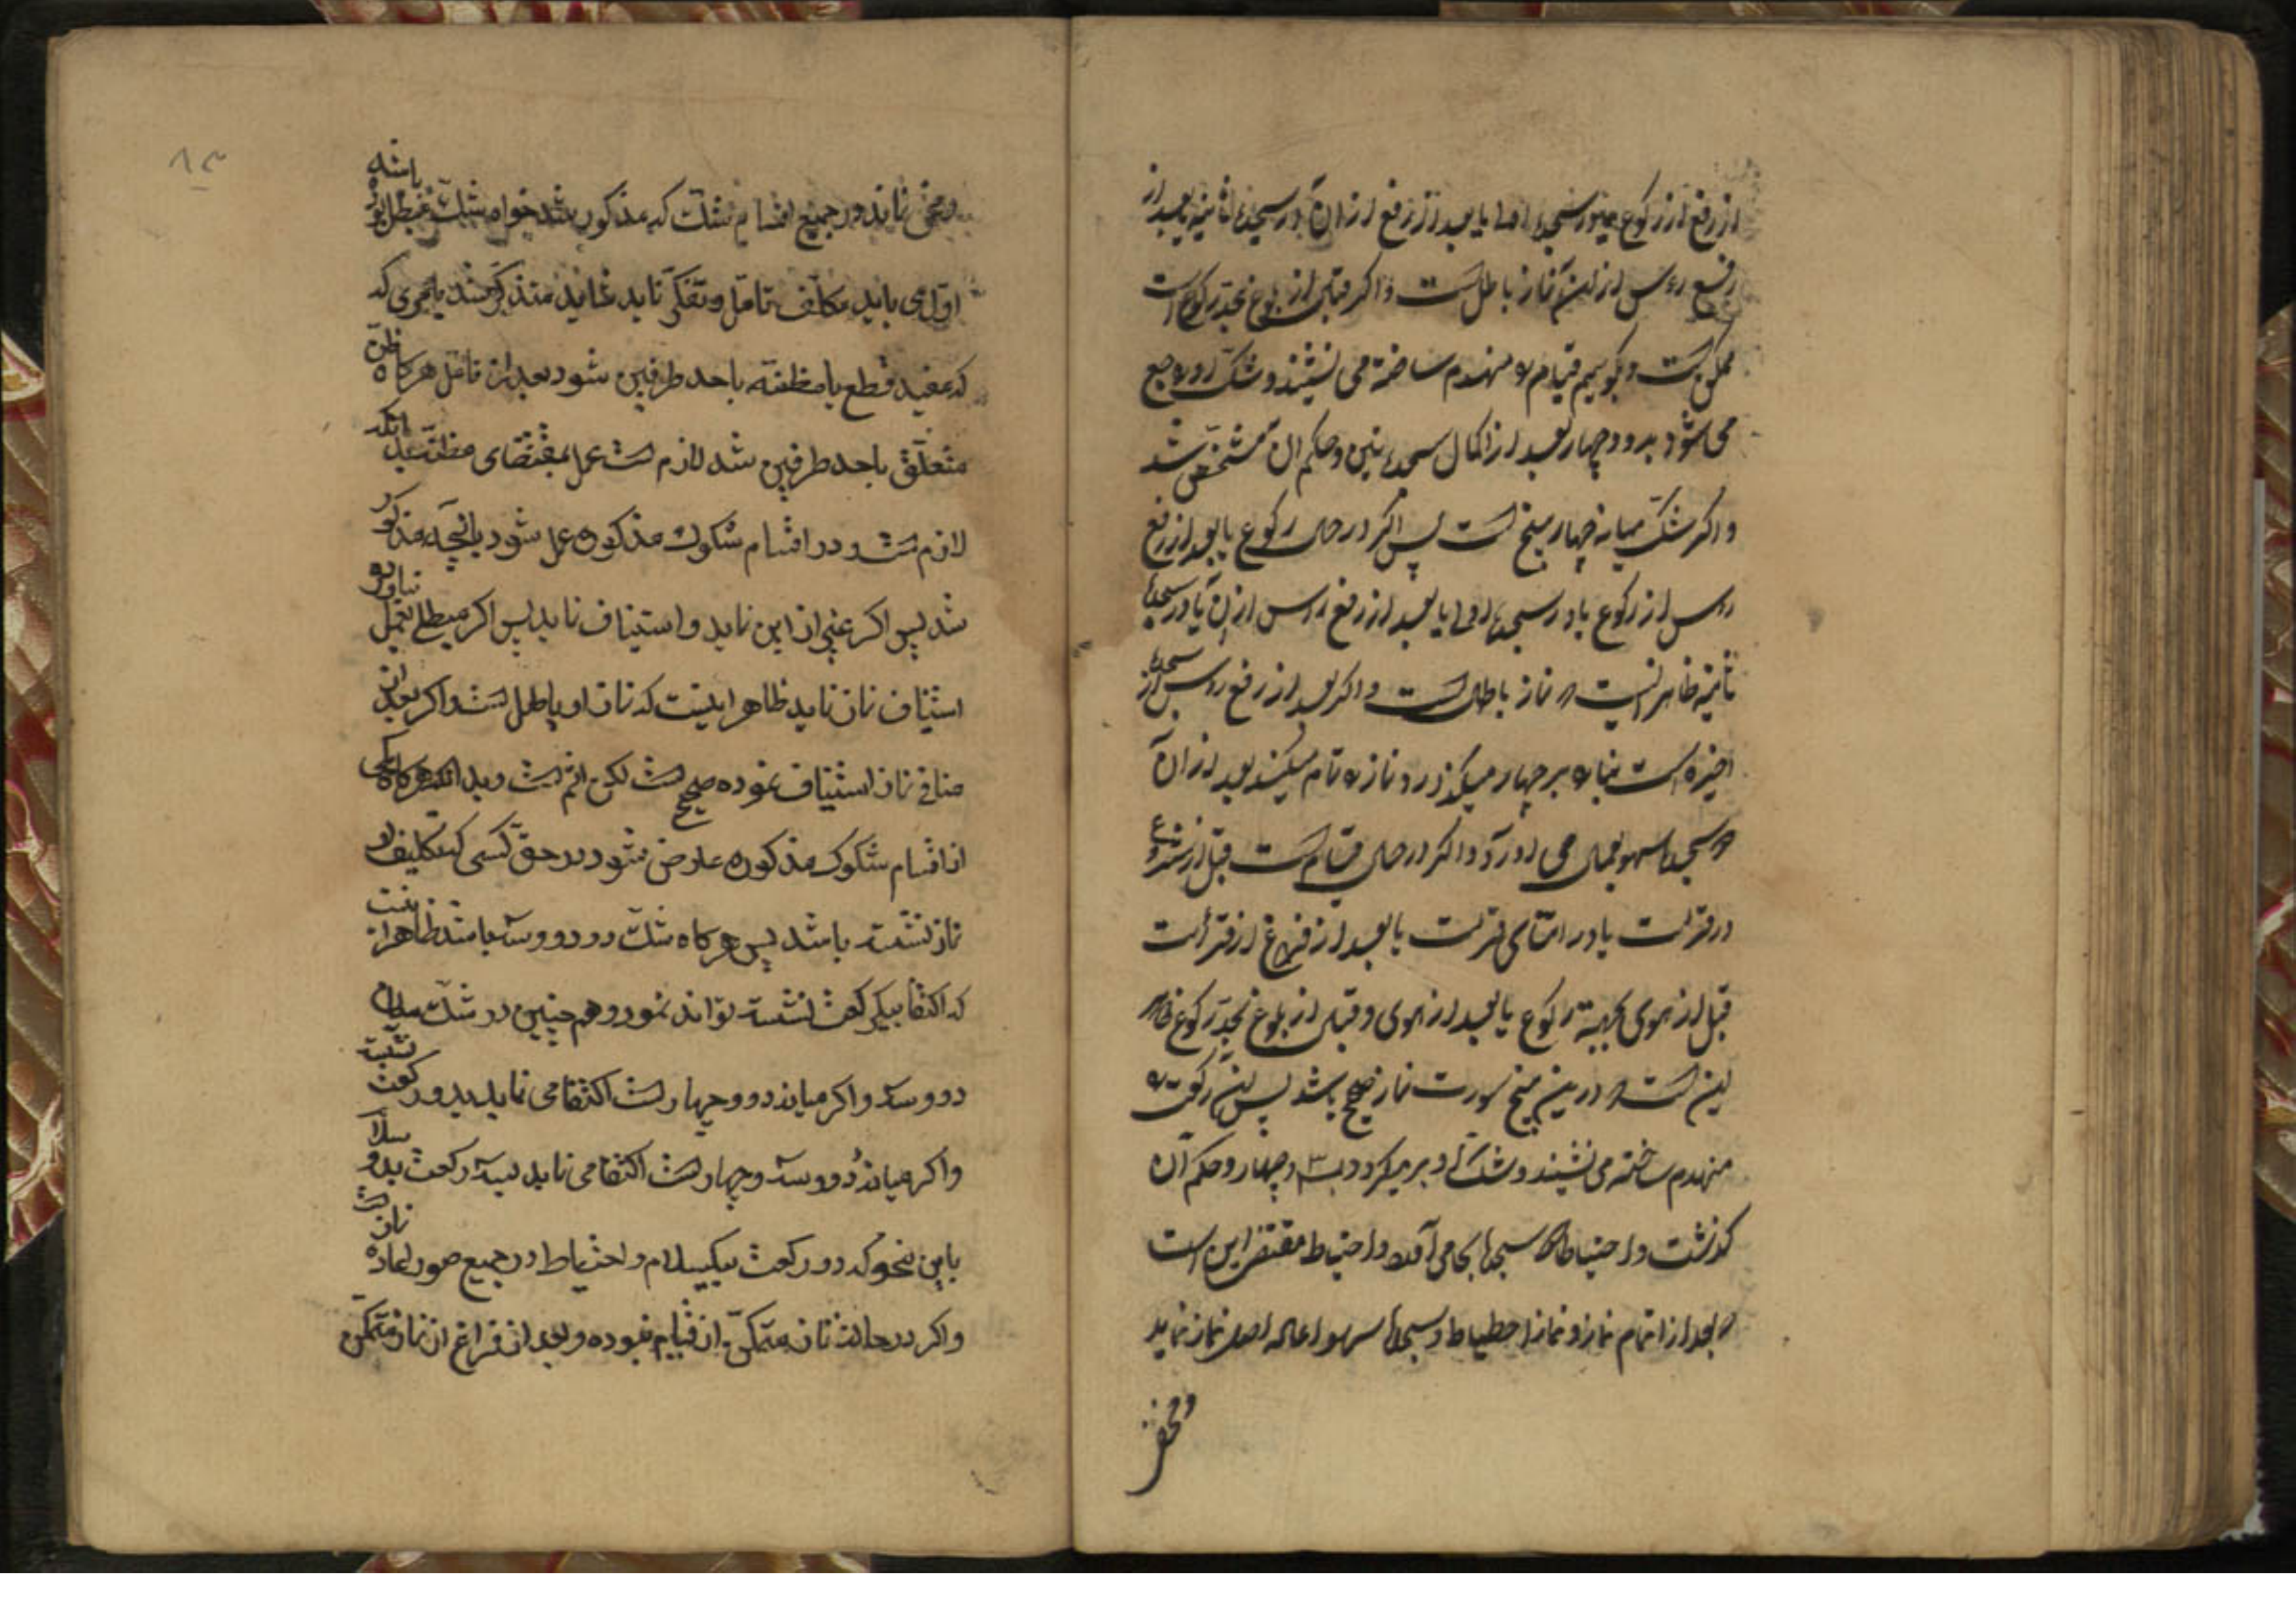 از رفع از رکوع یا در سجدهٔ اولی یا بعد از رفع از ان یا در سجدهٔ ثانیه یا بعد از
رفع رءس از ان نماز باطل است و اکر قبل از بلوغ بحد رکوع است
ممکن است و کوییم قیام را منهدم ساخته می نشیند و شک او راجع
می شود بدو و چهار بعد از اکمال سجدتین و حکم ان مشخص شد
و اکر شک میانه چهار و پنج است پس اکر در حال رکوع یا بعد از رفع
رءس از رکوع یا در سجدهٔ اولی یا بعد از رفع رءس از ان یا در سجدهٔ
ثانیه ظاهر اینست که نماز باطل است و اکر بعد از رفع رءس از سجدهٔ
اخیره است بنا را بر چهار میکذارد و نماز را تمام میکند بعد از ان
دو سجدهٔ سهو بعمل می اورد و اکر در حال قیام است قبل از شروع
در قرائت یا در اثنای قرائت یا بعد از فراغ از قرائت
قبل از هوی بجهة رکوع یا بعد از هوی و قبل از بلوغ بحد رکوع ظاهر
این است که درین پنج صورت نماز صحیح باشد پس این رکعت را
منهدم ساخته می نشیند و شک او بر میکردد بسه و چهار و حکم آن
کذشت و احتیاطا دو سجدهٔ بجا می آورد و احتیاط مقتضی این است
که بعد از اتمام نماز و نماز احتیاط و سجدهٔ سهو اعاده اصل نماز نماید
و مخفی
۸۳
و مخفی نماند در جمیع اقسام شک که مذکور شد خواه شک مبطل بوده باشد
اول می باید مکلف تامل و تفکر نماید شاید متذکر شد یا نحوی که
که مفید قطع یا مظنه باحد طرفین شود بعد از تامل هر کاه ظن
متعلق باحد طرفین شد لازم است عمل بمقتضای مظنه بدانکه
لازم است در اقسام شکوک مذکوره عمل شود بانچه مذکور
شد پس اکر غیر از این نماید و استیناف نماید پس اکر مبطلی بعمل نیاورده
استیناف نماز نماید ظاهر اینست که نماز او باطل است و اکر بعد از
منافی نماز استیناف نموده صحیح است لکن اثم است و بدانکه هر کاه یکی
از اقسام شکوک مذکوره عارض شود در حق کسی که تکلیف او
نماز نشسته باشد پس هر کاه شک در دو و سه باشد ظاهر انست
که اکتفا بیک رکعت نشسته تواند نمود و هم چنین در شک میان
دو و سه و اکر میانه دو و چهار است اکتفا می نماید بدو رکعت نشسته
و اکر میانه دو و سه و چهار است اکتفا می نماید بسه رکعت بدو سلام
باین نحو که دو رکعت بیکسلام و احتیاط در جمیع صور اعاده نماز است
و اکر در حالت نماز متمکن از قیام نبوده و بعد از فراغ از نماز متمکن